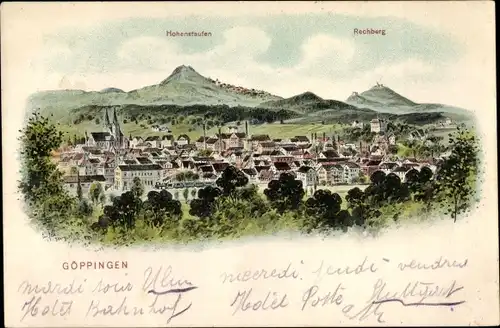 Hohenstaufen
Rechberg
GÖPPINGEN
mardi soir Ulm
Hotel Bahnhof
mercredi jeudi vendredi
Hotel Post Stuttgart